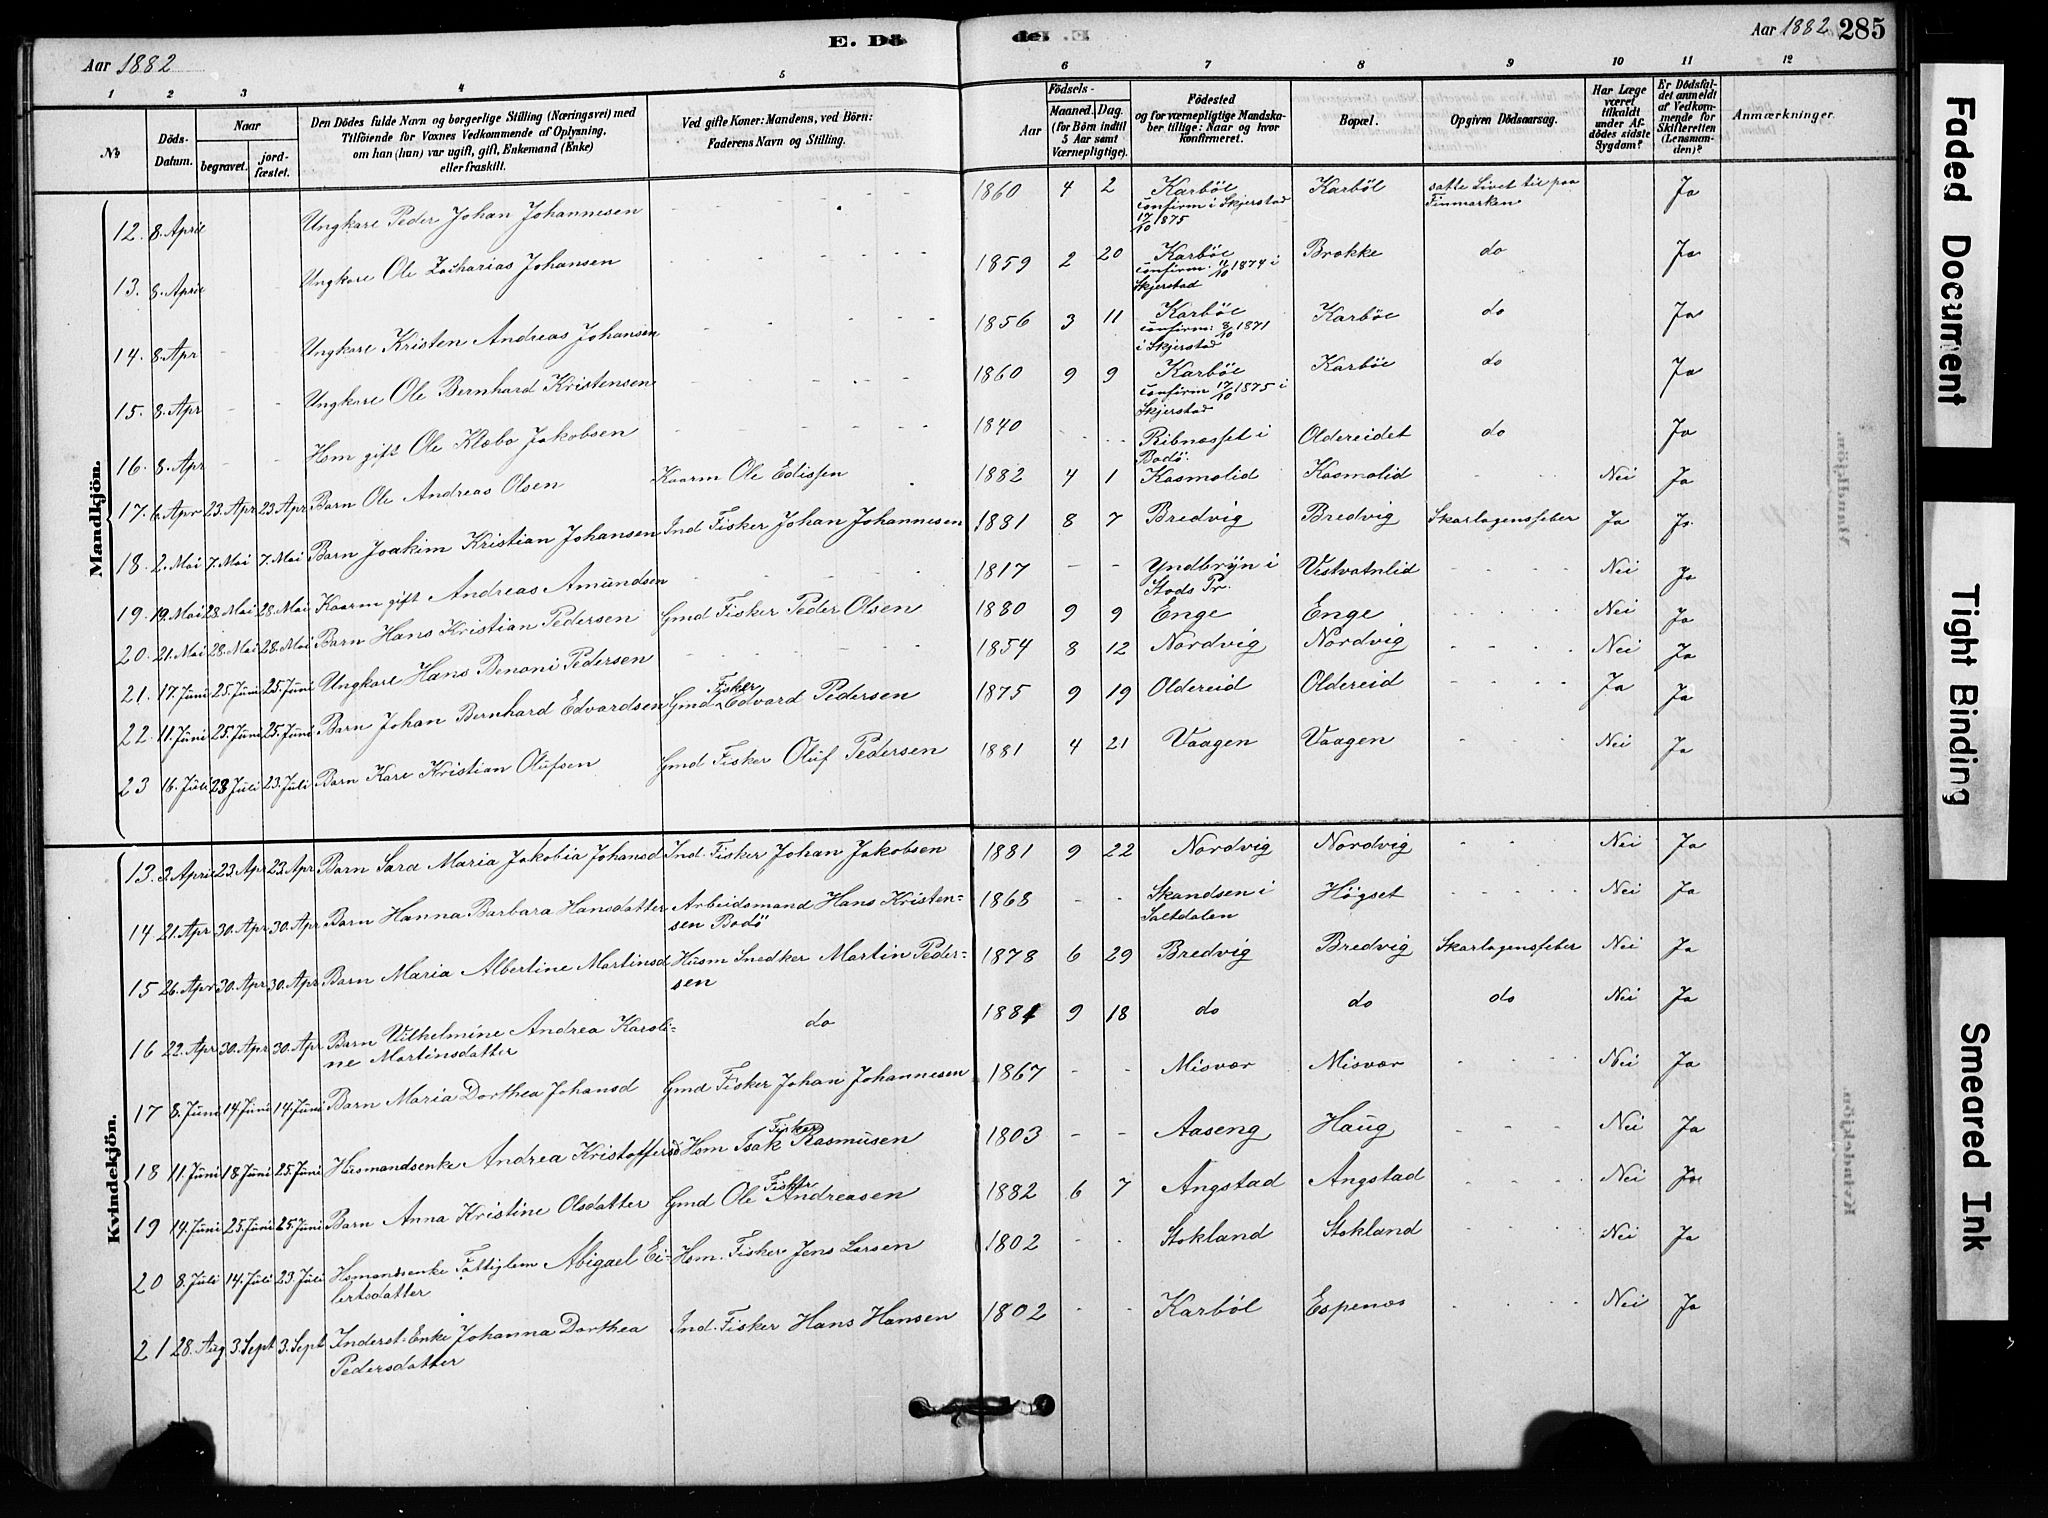 E. Dö
del .E
Aar 1882
Aar 1882 285
1 2 3 4 5 6 7 8 9 10 11 12
No
Döds-Datum.
Naar
begravet.
jord-fæstet.
Den Dödes fulde Navn og borgerlige Stilling (Næringsvei) med
Tilföiende for Voxnes Vedkommende af Oplysning,
om han (hun) var ugift, gift, Enkemand (Enke)
eller fraskilt.
Ved gifte Koner: Mandens, ved Börn:
Faderens Navn og Stilling.
Födsels-
Aar
Maaned. Dag.
(for Börn indtil
5 Aar samt
Værnepligtige).
Födested
og for værnepligtige Mandska-
ber tillige: Naar og hvor
Konfirmeret.
Bopæl.
Opgiven Dödsaarsag.
Har Læge
været
tilkaldt
under Af-
dödes sidste
Sygdom?
Er Dödsfal-
det anmeldt
af Vedkom-
mende for
Skifteretten
(Lensman-
den)?
Anmærkninger.
Mandkjön.
12. 8. April Ungkare Peder Johan Johannesen 1860 4 2 Karböl Karböl satte Livet til paa Ja
confirm i Skjerstad Finmarken
17/10 1875
13. 8. April Ungkare Ole Zacharias Johansen 1859 2 20 Karböl Brokke do Ja
confirm. 11/10 1874 i
Skjerstad
14. 8. Apr Ungkare Kristen Andreas Johansen 1856 3 11 Karböl Karböl do Ja
confirm: 8/10 1871
i Skjerstad
15. 8. Apr Ungkare Ole Bernhard Kristensen 1860 9 9 Karböl Karböl do Ja
confirm 17/10 1875 i
Skjerstad
16. 8. Apr Hsm gift Ole Klæbo Jakobsen 1840 Ribnæsset i Oldereidet do Ja
Bodö.
17. 6. Apr 23. Apr 23 Apr Barn Ole Andreas Olsen Kaarm Ole Edissen 1882 4 1 Kosmolid Kosmolid Nei Ja
18. 2. Mai 7. Mai 7. Mai Barn Joakim Kristian Johansen Ind Fisker Johan Johannesen 1881 8 7 Bredvig Bredvig Skarlagensfeber Ja Ja
19. 19. Mai 28 Mai 28. Mai Kaarm gift Andreas Amundsen 1817 - - Yndbryn i Vestvatnlid Nei Ja
Stods Pr.
20. 21. Mai 28. Mai 28. Mai Barn Hans Kristian Pedersen Gmd Fisker Peder Olsen 1880 9 9 Enge Enge Nei Ja
21. 17. Juni 25. Juni 25. Juni Ungkare Hans Benoni Pedersen 1854 8 12 Nordvig Nordvig Nei Ja
22. 11. Juni 25. Juni 25. Juni Barn Johan Bernhard Edvardsen Gmd Fisker Edvard Pedersen 1875 9 19 Oldereid Oldereid Ja Ja
23 16. Juli 23 Juli 23. Juli Barn Kare Kristian Olufsen Gmd Fisker Oluf Pedersen 1881 4 21 Vaagen Vaagen Nei Ja
Kvindekjön.
13. 2. April 23. Apr 23. Apr Barn Sara Maria Jakobia Johansd Ind. Fisker Johan Jakobsen 1881 9 22 Nordvig Nordvig Nei Ja
14 21. Apr 30. Apr 30. Apr Barn Hanna Barbara Hansdatter Arbeidsmand Hans Kristen- 1868 - - Skandsen i Högset Nei Ja
sen Bodö Saltdalen
15 26. Apr 30. Apr 30. Apr Barn Maria Albertine Martinsd Husm Snedker Martin Peder- 1878 6 29 Bredvig Bredvig Skarlagensfeber Nei Ja
sen
16 22. Apr 30. Apr 30. Apr Barn Vilhelmine Andrea Karoli- do 1881 9 18 do do do Nei Ja
ne Martinsdatter
17 8. Juni 14. Juni 14. Juni Barn Maria Dorthea Johansd Gmd Fisker Johan Johannesen 1867 - - Misvær Misvær Nei Ja
18 11. Juni 18. Juni 25. Juni Husmandsenke Andrea Kristoffersd Hsm Isak Fisker Rasmusen 1803 - - Aaseng Haug Nei Ja
19 14. Juni 25. Juni 25. Juni Barn Anna Kristine Olsdatter Gmd Ole Fisker Andreasen 1882 6 7 Angstad Angstad Nei Ja
20 8. Juli 14. Juli 23 Juli Hsmandsenke Fattiglem Abigael Ei- Hsm. Fisker Jens Larsen 1802 Stokland Stokland Nei Ja
lertsdatter
21 28. Aug 3. Sept 3. Sept Inderst. Enke Johanna Dorthea Ind. Fisker Hans Hansen 1802 Karböl Espenæs Nei Ja
Pedersdatter
Faded Document
Tight Binding
Smeared Ink